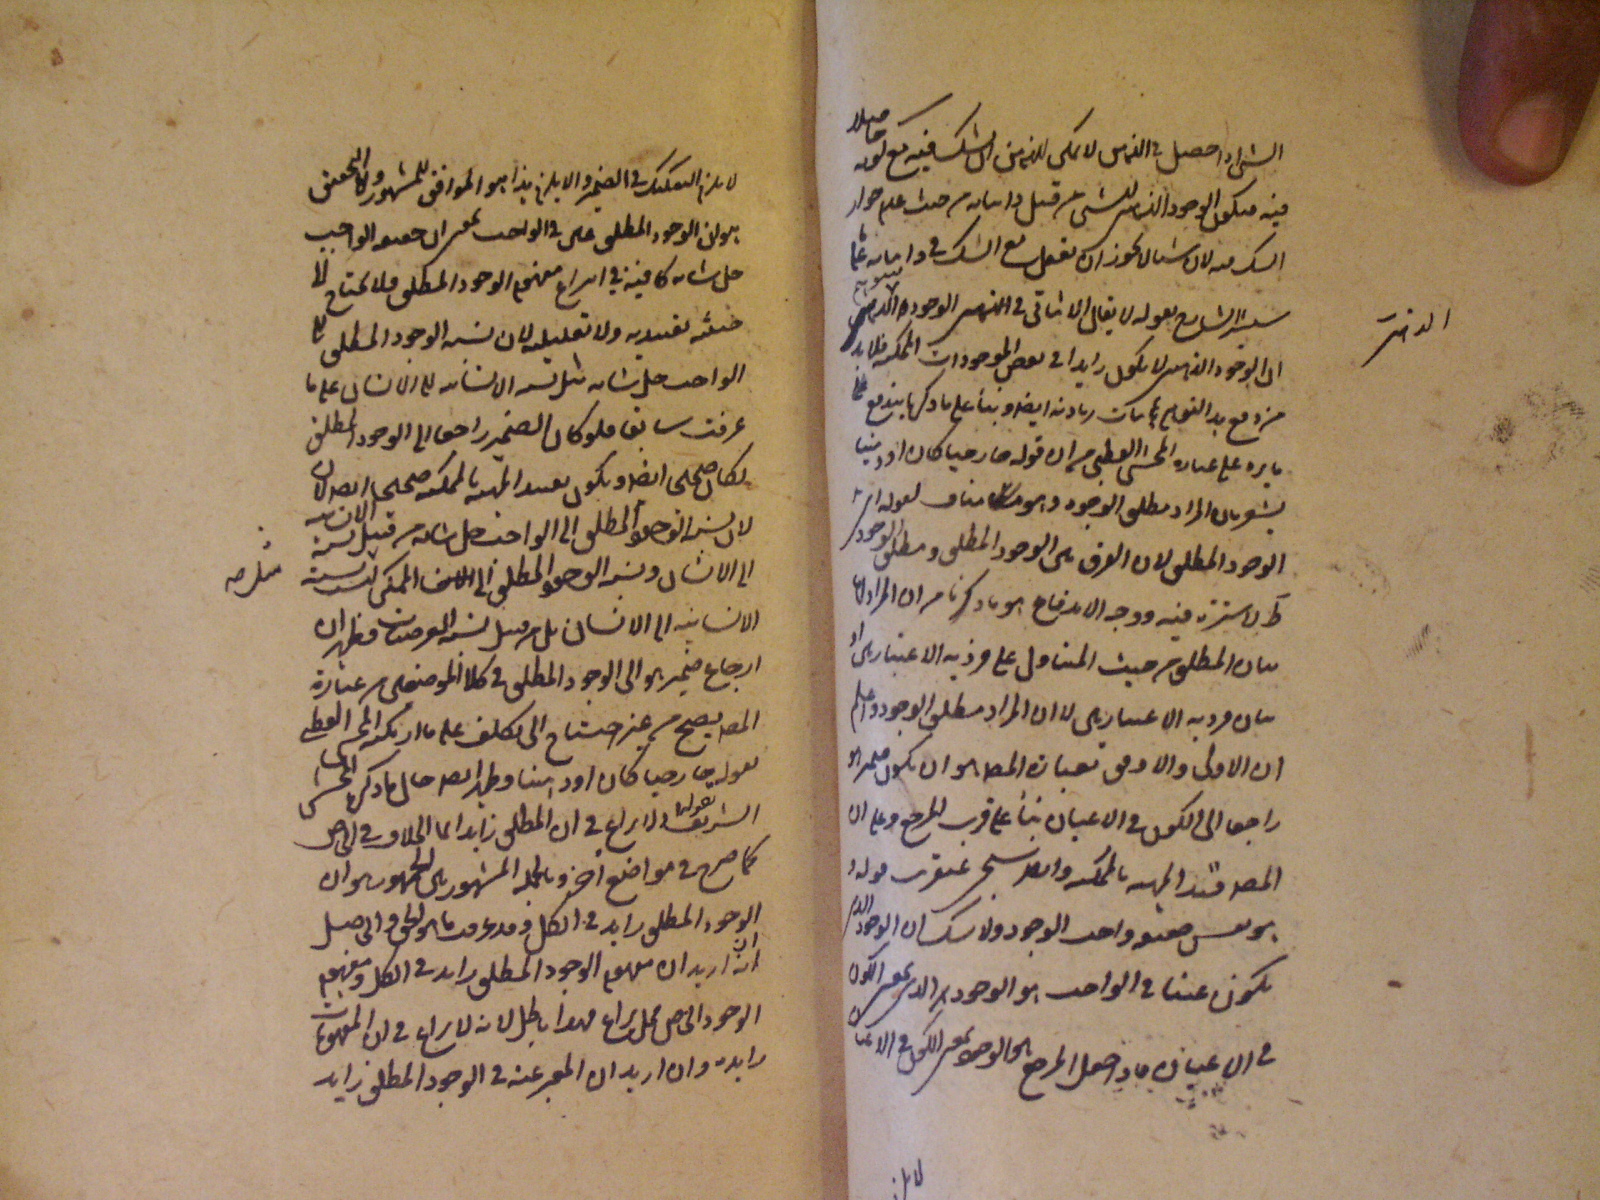 الشي اذا حصل في الذهن لا يمكن للذهن الشك فيه مع كونه حاصلا
فيه فيكون الوجود الذهني للشي من قبيل ذاتياته من حيث عدم جواز
الشك فيه لان شيئا لا يجوز ان يعقل مع الشك في ذاتياته
الشارح بقوله لا يقال الاشياء في الذهن الوجود
ان الوجود الذهني لا يكون زايدا في بعض الموجودات الممكنة فلا بد
من دفع هذا التوهم باثبات زيادته ايضا وبناء على ما ذكرنا يندفع
ما يرد على عبارة المحشي القطبي من ان قوله خارجيا كان او ذهنيا
يشعر بان المراد مطلق الوجود وهو مناف لقوله
الوجود المطلق لان الفرق بين الوجود المطلق ومطلق الوجود
لا سترة فيه ووجه الاندفاع هو ما ذكرنا من ان المراد
بيان المطلق من حيث التناول على فرديه الاعتباريين او
بيان فرديه الاعتباريين لا ان المراد مطلق الوجود واعلم
ان الاولى والاوفق بعبارة المصـ هو ان يكون ضمير هو
راجعا الى الكون في الاعيان بناء على قرب المرجع وعلى ان
المصـ قيد المهية بالممكنة وايضا سيجي عنقريب قوله
هو نفس حقيقة واجب الوجود ولا شك ان الوجود الذي
يكون عينا في الواجب هو الوجود الذي بمعنى الكون
في الاعيان فاذا جعل المرجع هو الوجود بمعنى الكون في الاعيان
لا يلزم
لا يلزم التفكيك في الضمير والا يلزم هذا هو الموافق للمشهور والتحقيق
هو ان الوجود المطلق عين في الواجب بمعنى ان حقيقة الواجب
جل شانه كافية في انتزاع مفهوم الوجود المطلق فلا يحتاج الى
حيثية تقييدية ولا تعليلية لان نسبة الوجود المطلق الى
الواجب جل شانه مثل نسبة الانسانية الى الانسان على ما
عرفت سابقا فلو كان الضمير راجعا الى الوجود المطلق
لكان صحيحا ايضا ويكون تقييد المهية بالممكنة صحيحا ايضا
لان نسبة الوجود المطلق الى الواجب جل شانه من قبيل نسبة الانسانية
الى الانسان ونسبة الوجود المطلق الى الممكن ليست نسبة
الانسانية الى الانسان بل من قبيل نسبة العرضيات فظهر ان
ارجاع ضمير هو الى الوجود المطلق في كلا الموضعين من عبارة
المصـ يصح من غير احتياج الى تكلف على ما ارتكبه المحشي القطبي
بقوله خارجيا كان او ذهنيا وظهر ايضا حال ما ذكره المحشي
الشريف بقوله لا نزاع في ان المطلق زايد انما الخلاف في الخاص
كما صرح في مواضع اخر وبالجملة المشهور بين الجمهور هو ان
الوجود المطلق زايد في الكل وقد عرفت ما هو الحق والحاصل
انه ان اريد ان مفهوم الوجود المطلق زايد في الكل ومفهوم
الوجود الخاص محل نزاع فهذا باطل لانه لا نزاع في ان المفهومات
زايدة وان اريد ان المعبر عنه في الوجود المطلق زايد